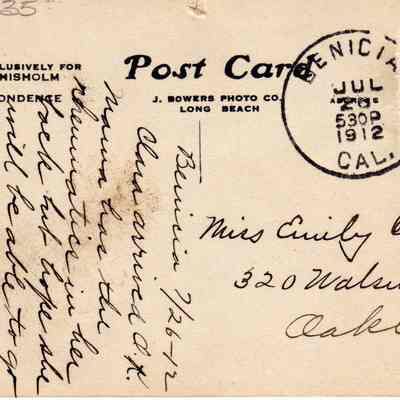 35
LUSIVELY FOR
HISHOLM
PONDENCE
Post Card
J. BOWERS PHOTO CO.
LONG BEACH
BENICIA
JUL
530P
1912
CAL.
Benicia 7/26-12
Clara arrived O.K.
Mama has the
rheumatics in her
back but hope she
will be able to go
Miss Emily
320 Wals
Oak